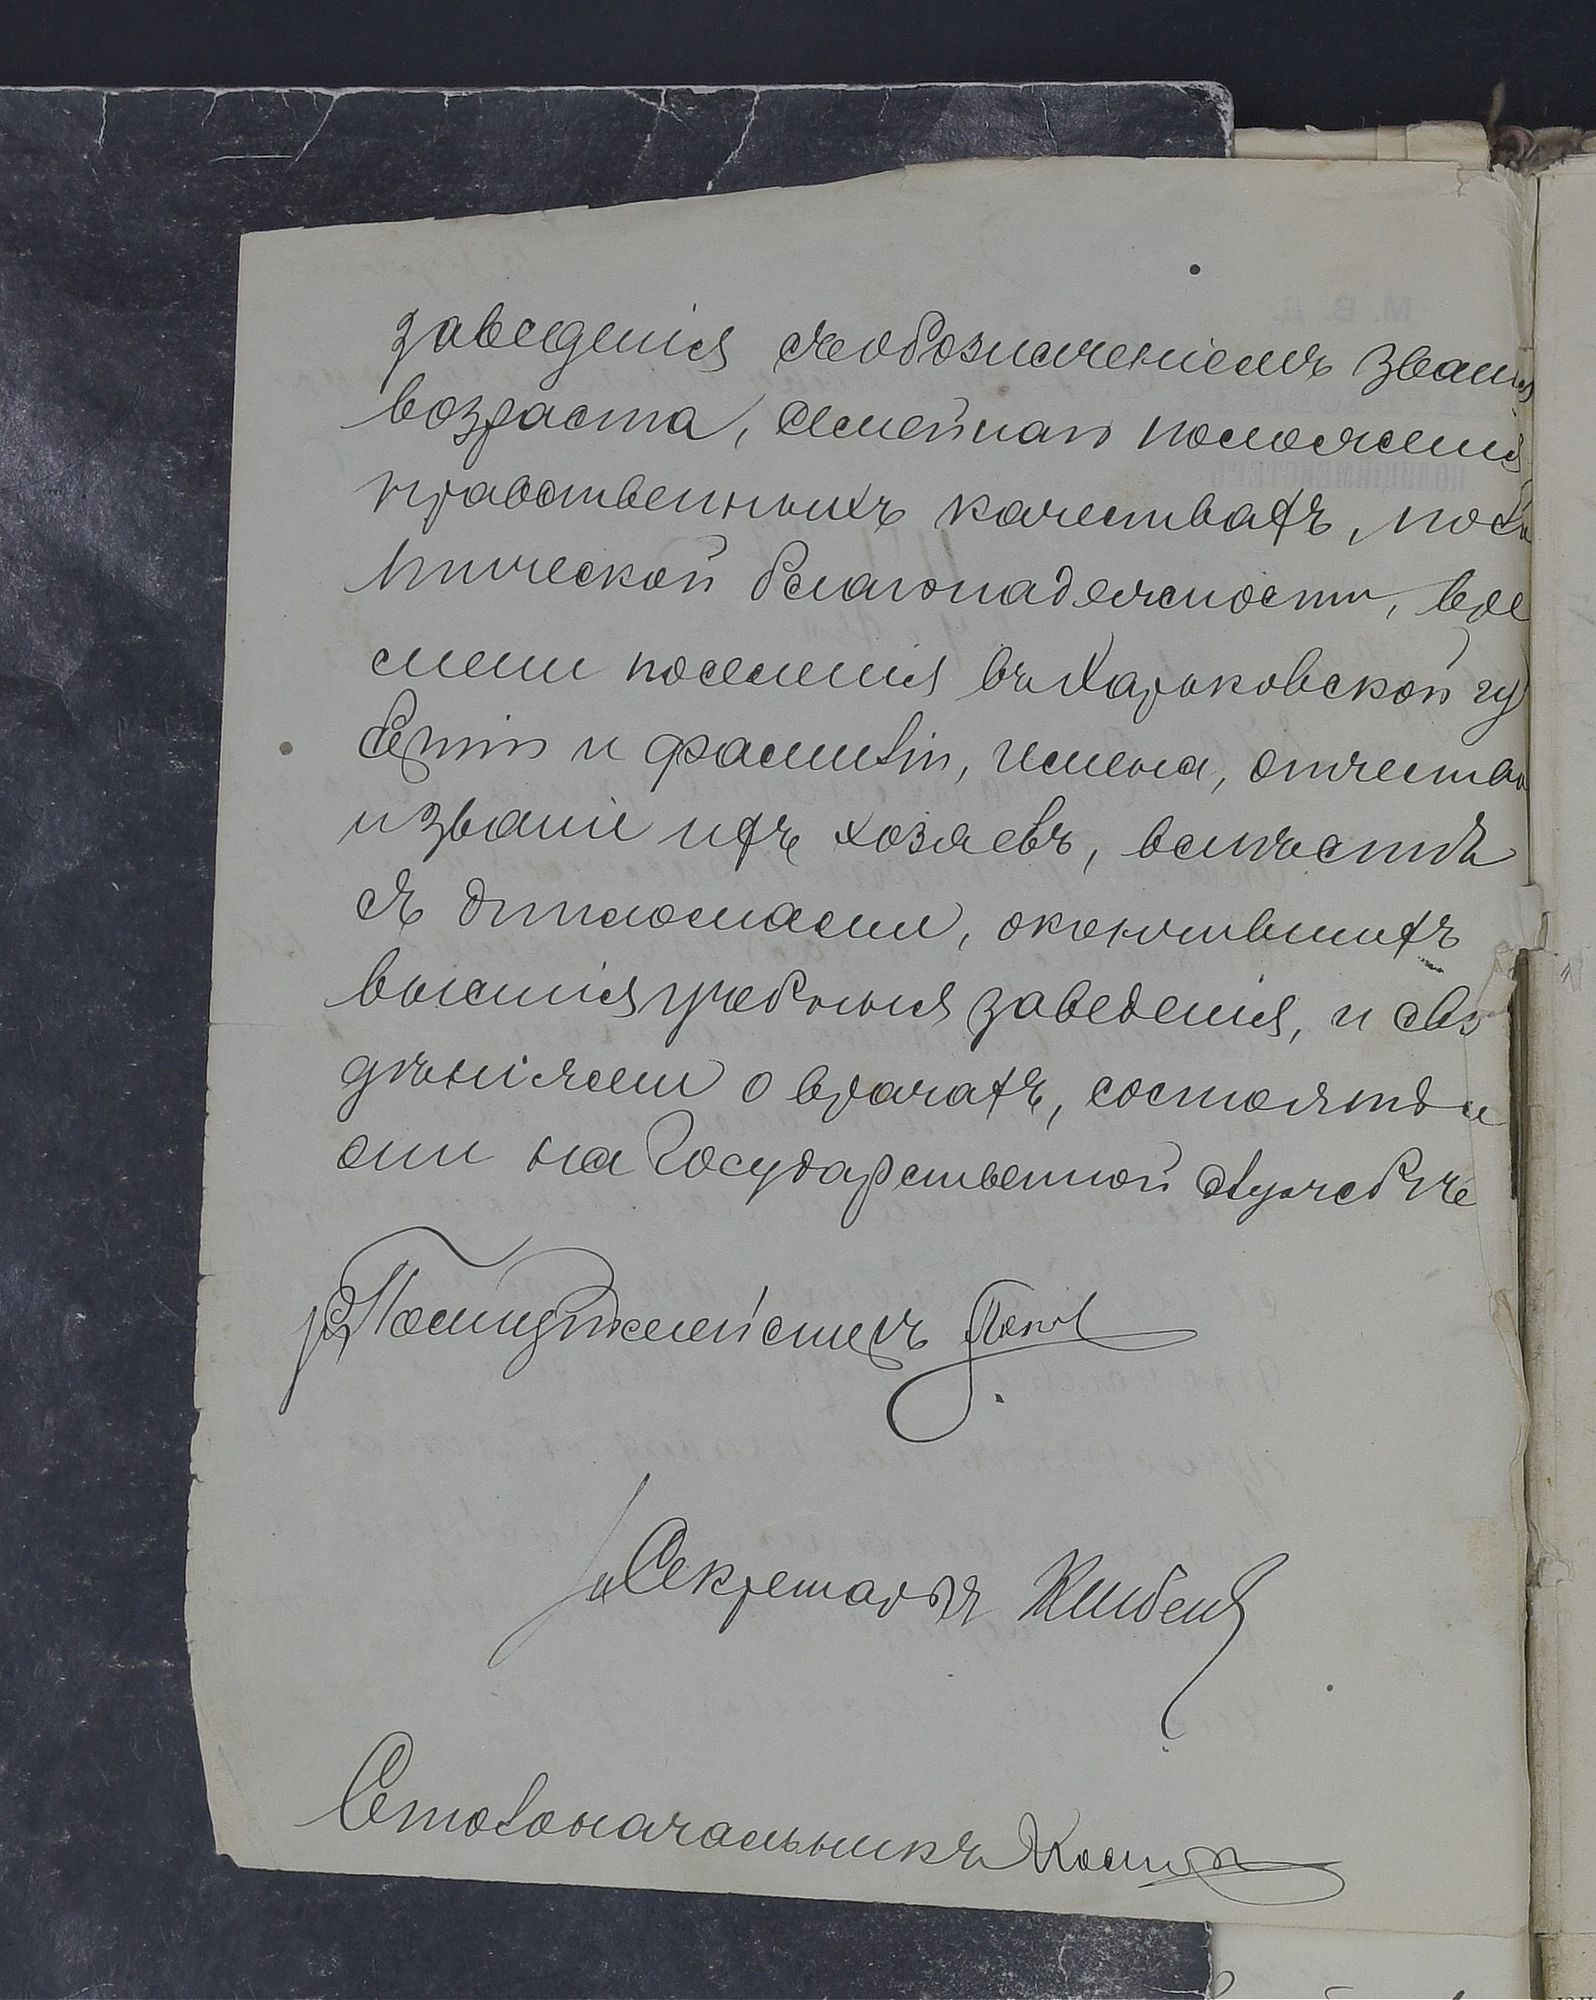 заведенія съ обозначеніемъ званія
возраста, семейнаго положенія
нравственныхъ качествахъ, поли
тической благонадежности, вре
мени поселенія въ Харьковской гу
берніи и фамиліи, имена, отчества
и званіе ихъ хозяевъ, вмѣстѣ
съ дипломами, окончившихъ
высшія учебныя заведенія, и свѣ
дѣніями о врачахъ, состоятъ ли
они на Государственной службѣ
Полиціймейстеръ
Секретарь
Столоначальникъ